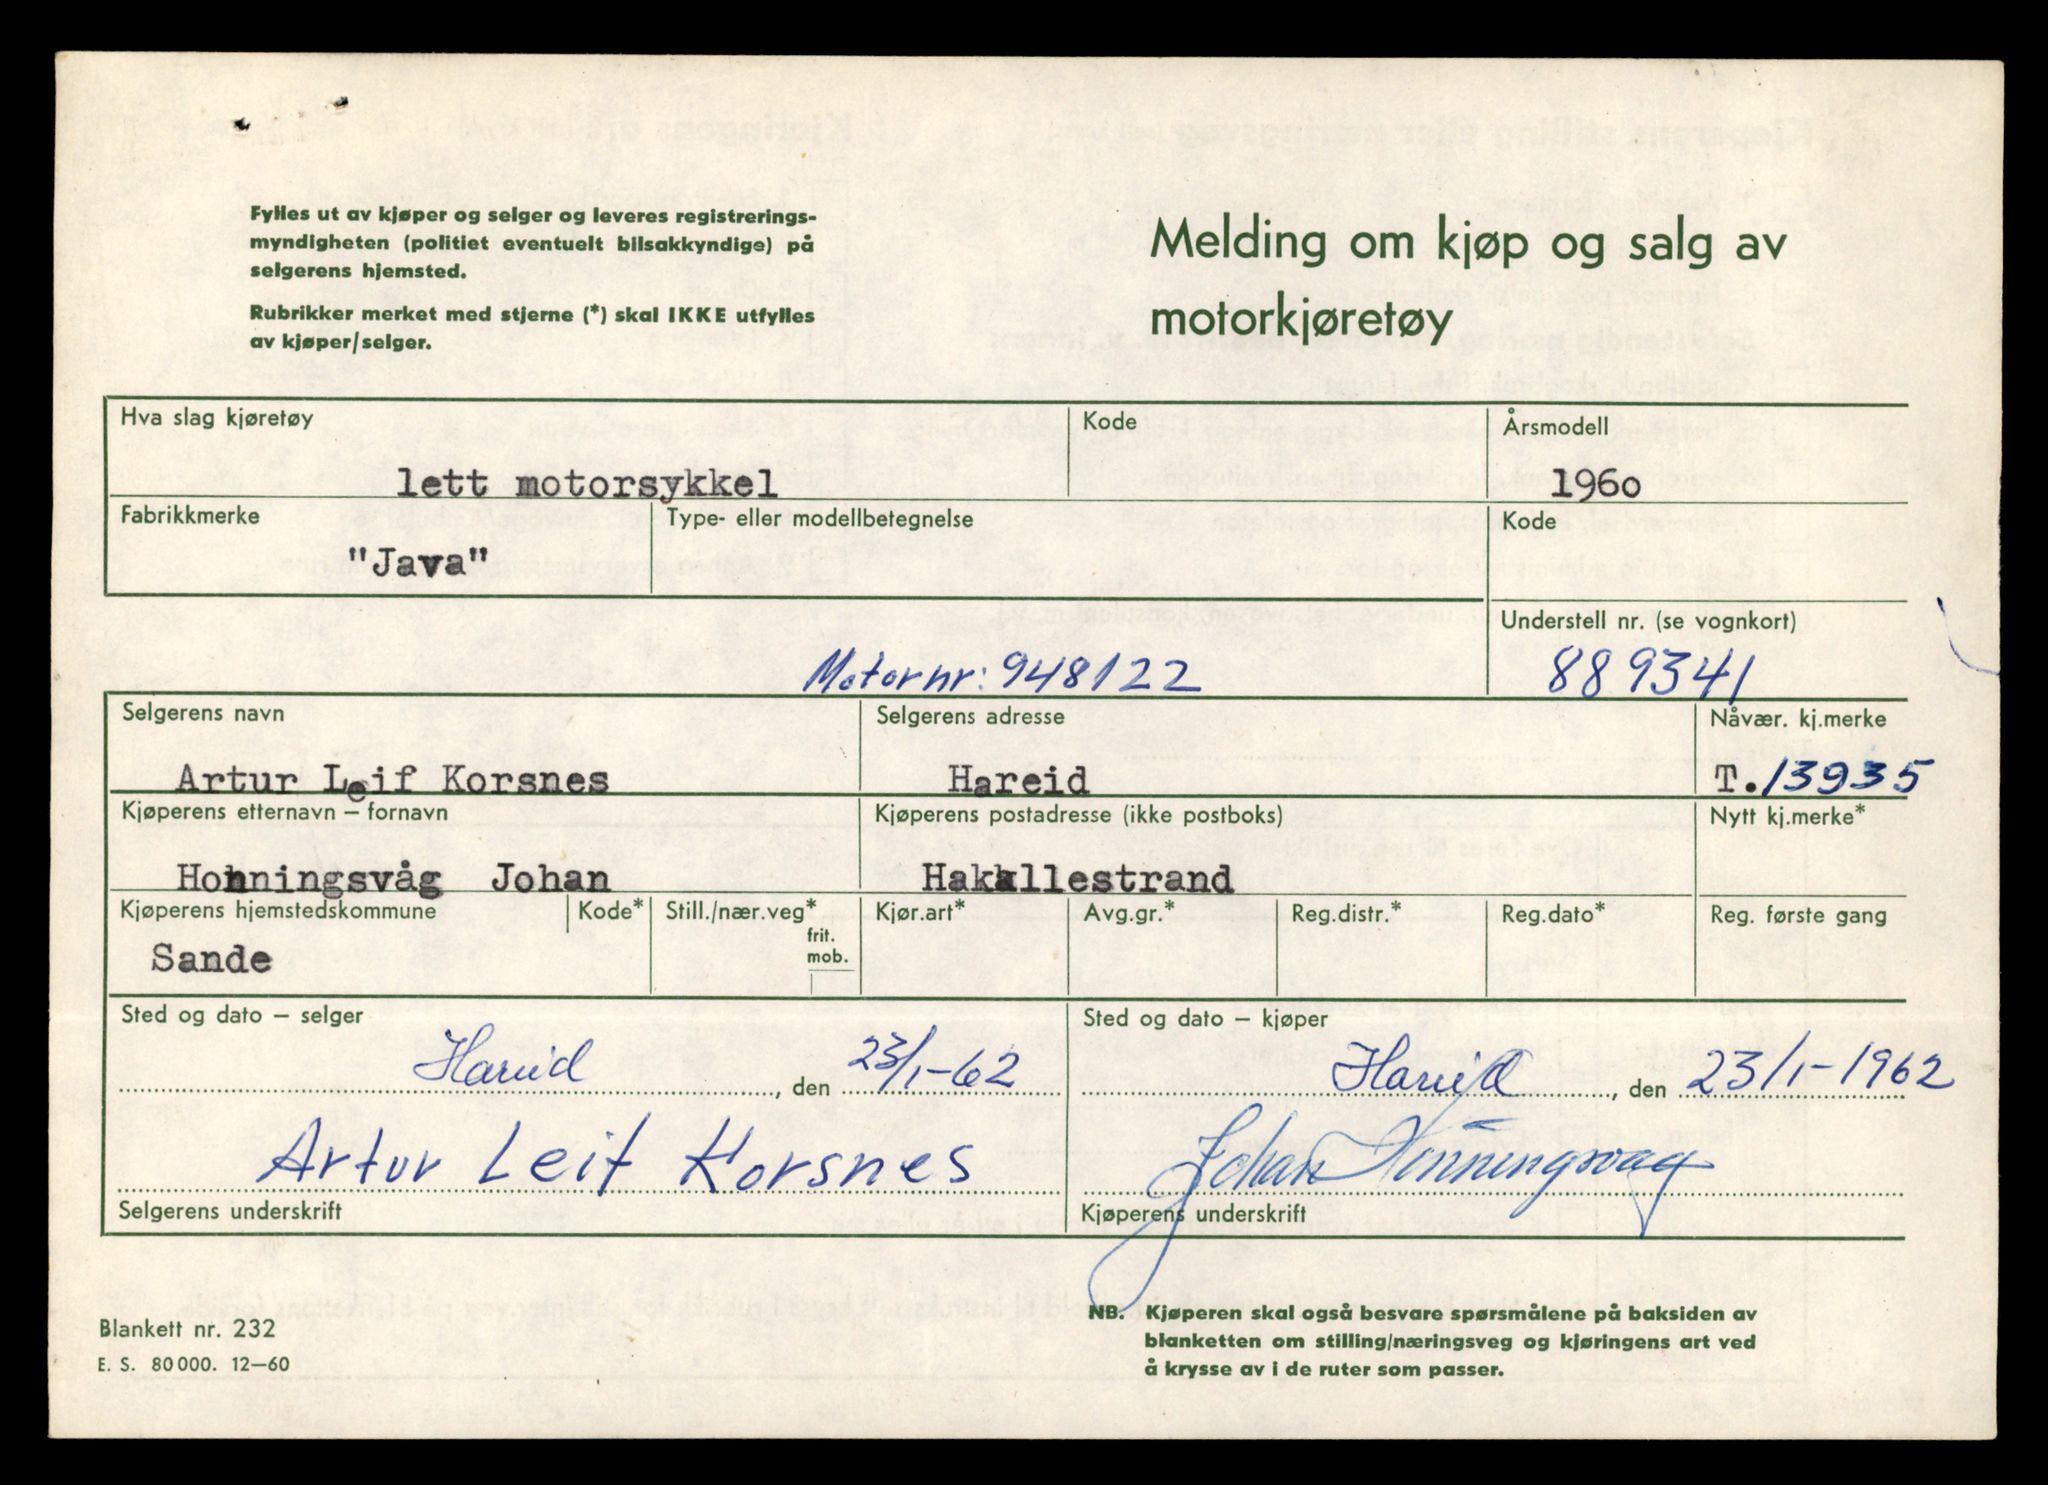 Fylles ut av kjøper og selger og leveres registrerings-
myndigheten (politiet eventuelt bilsakkyndige) på
selgerens hjemsted.
Rubrikker merket med stjerne (*) skal IKKE utfylles
av kjøper/selger.
Melding om kjøp og salg av
motorkjøretøy
Hva slag kjøretøy Kode Årsmodell
lett motorsykkel 1960
Fabrikkmerke Type- eller modellbetegnelse Kode
"Java"
Understell nr. (se vognkort)
Motornr: 948122 889341
Selgerens navn Selgerens adresse Nåvær. kj.merke
Artur Leif Korsnes Hareid T. 13935
Kjøperens etternavn – fornavn Kjøperens postadresse (ikke postboks) Nytt kj.merke*
Honningsvåg Johan Hakallestrand
Kjøperens hjemstedskommune Kode* Still./nær.veg* Kjør.art* Avg.gr.* Reg.distr.* Reg.dato* Reg. første gang
frit.
mob.
Sande
Sted og dato – selger Sted og dato – kjøper
Hareid, den 23/1-62 Hareid, den 23/1-1962
Artur Leif Korsnes Johan Honningsvåg
Selgerens underskrift Kjøperens underskrift
NB. Kjøperen skal også besvare spørsmålene på baksiden av
blanketten om stilling/næringsveg og kjøringens art ved
å krysse av i de ruter som passer.
Blankett nr. 232
E. S. 80 000. 12—60